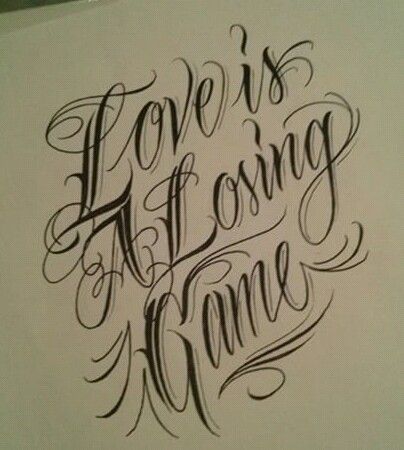 Love is
A Losing
Game